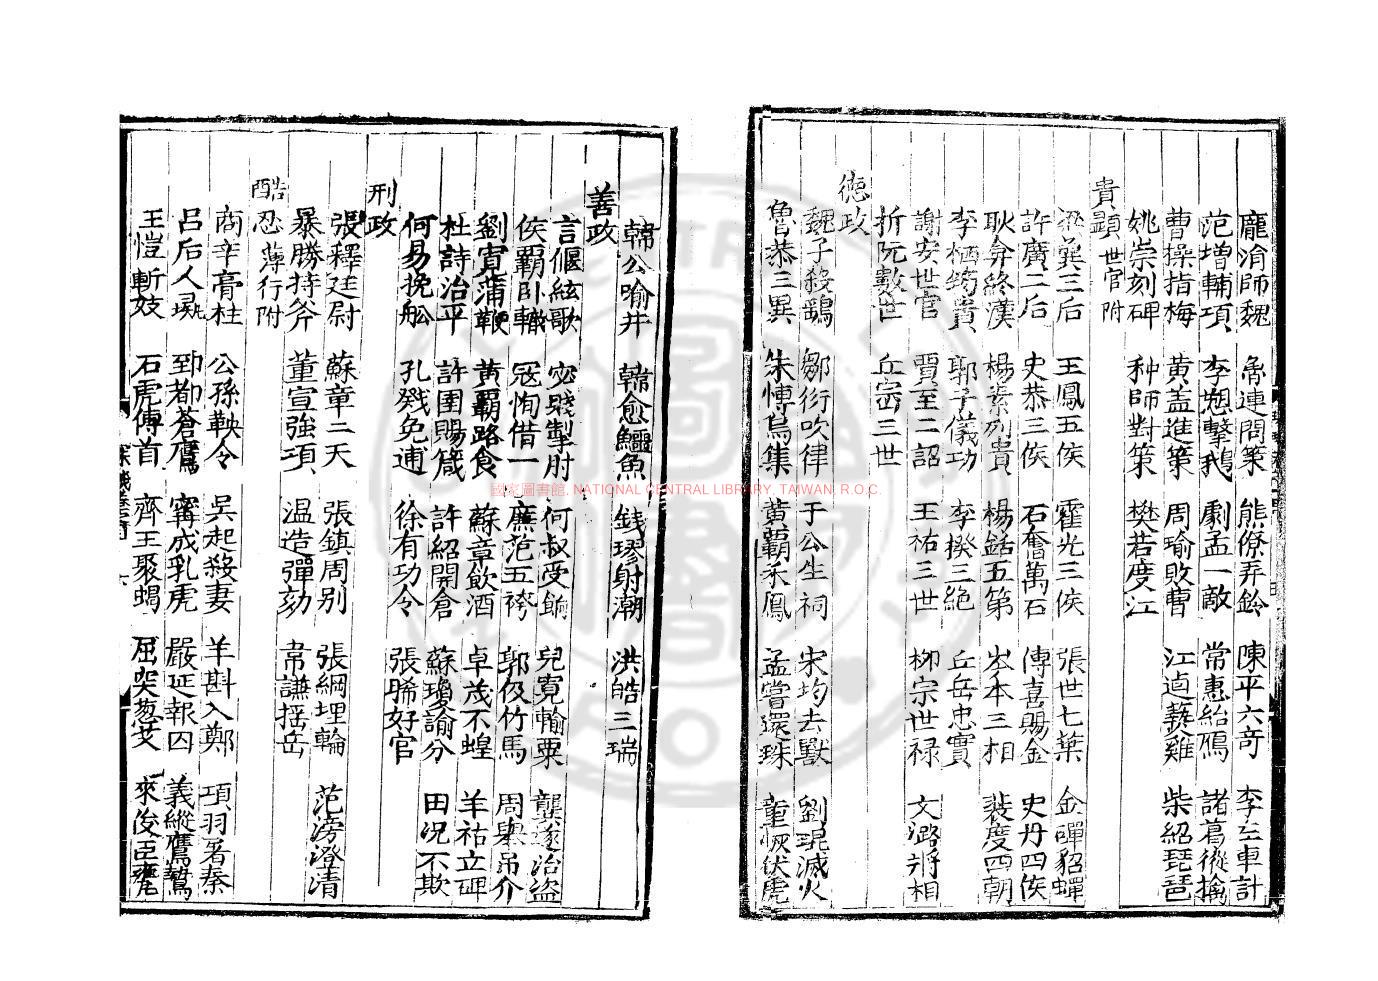 龐涓師魏 魯連問策 熊僚弄鈴 陳平六奇 李左車計
范增輔項 李愬擊鵝 劇孟一敵 常惠紿碼 諸葛從擒
曹操指梅 黃盖進策 周瑜敗曹 江逌爇雞 柴紹琵琶
姚崇刻碑 种師對策 樊若度江
貴顯世官附
梁冀三后 王鳳五侯 霍光三侯 張世七葉 金磾貂蟬
許廣二后 史恭三侯 石奮萬石 傅喜賜金 史丹四侯
耿弇終漢 楊素列貴 楊銛五第 岑本三相 裴度四朝
李栖筠貴 郭子儀功 李揆三絕 丘岳忠實
謝安世官 賈至二詔 王祐三世 柳宗世祿 文潞將相
折阮數世 丘密三世
德政
魏子殺鷂 鄒衍吹律 于公生祠 宋均去獸 劉琨滅火
魯恭三異 朱博烏集 黃霸禾鳳 孟嘗還珠 童恢伏虎
韓公喻井 韓愈鱷魚 錢璆射潮 洪皓三瑞
善政
言偃絃歌 宓賤掣肘 何叔受餉 兒寬輸粟 龔遂治盜
侯霸臥轍 冦恂借一 廉范五袴 郭伋竹馬 周舉吊介
劉寬蒲鞭 黃霸路食 蘇章飲酒 卓茂不蝗 羊祜立碑
杜詩治平 許圉賜箴 許紹開倉 蘇瓊諭分 田况不欺
何易挽船 孔戣免逋 徐有功令 張晞好官
刑政
張釋廷尉 蘇章二天 張鎮周別 張綱埋輪 范滂澄清
暴勝持斧 董宣強項 温造彈劾 韋謙搖岳
酷忍薄行附
商辛膏柱 公孫鞅令 吳起殺妻 羊斟入鄭 項羽暑秦
呂后人彘 郅都蒼鷹 甯成乳虎 嚴延報囚 義縱鷹鷙
王愷斬妓 石虎傳首 齊王聚蝎 屈突葱艾 來俊臣甕
國家圖書館, NATIONAL CENTRAL LIBRARY, TAIWAN, R.O.C.